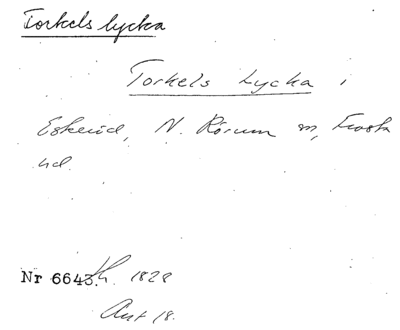 Torkels lycka
Torkels Lycka i
Eskeröd, N. Rörum sn, Frosta
hd.
Nr 6643. Kr. 1828
Ant 18.